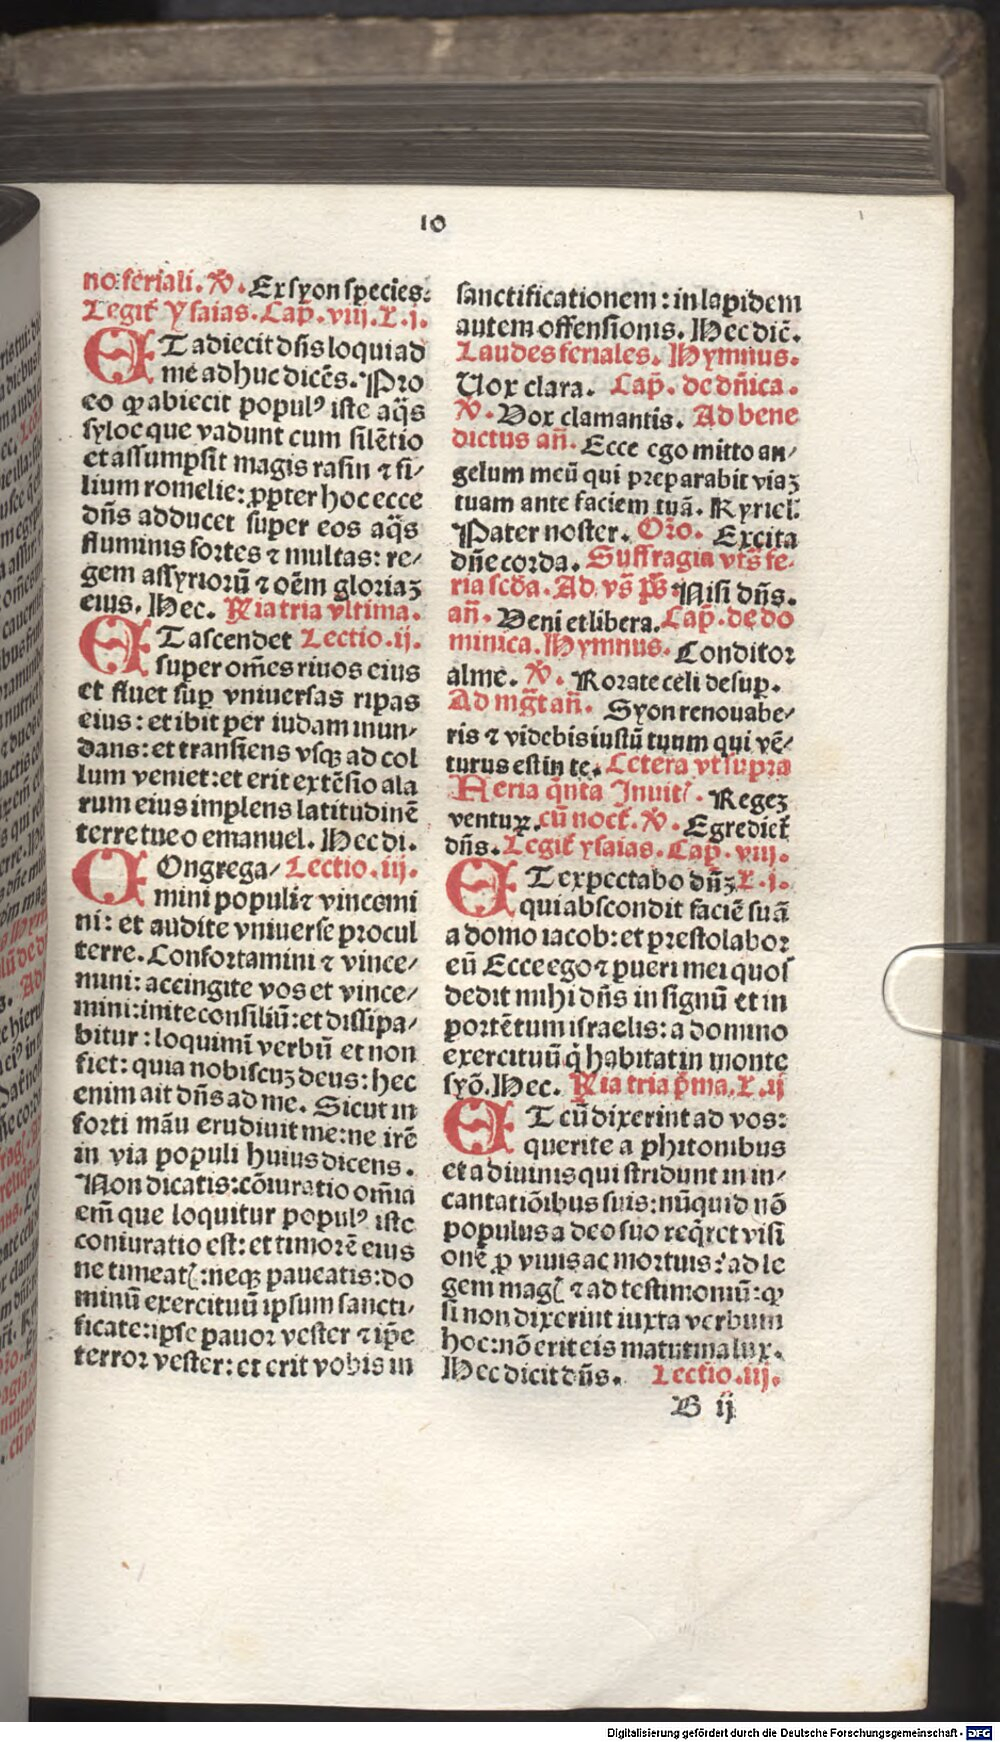 10
no feriali. ℣. Ex syon species:
Legit̃ Ysaias. Cap̃. viii. L. i.
ET adiecit dñs loqui ad
me adhuc dicẽs. Pro
eo ꝙ abiecit populꝰ iste aq̃s
syloe que vadunt cum silẽtio
et assumpsit magis rasin ⁊ fi/
lium romelie: ꝓpter hoc ecce
dñs adducet super eos aq̃s
fluminis fortes ⁊ multas: re/
gem assyrioꝝ ⁊ oẽm gloriaꝫ
eius. Hec. Ria tria vltima.
ET ascendet Lectio. ii.
super om̃es riuos eius
et fluet suꝑ vniuersas ripas
eius: et ibit per iudam inun/
dans: et transiens vsqꝫ ad col
lum veniet: et erit extẽsio ala
rum eius implens latitudinẽ
terre tue o emanuel. Hec di.
COngrega/ Lectio. iii.
mini populi ⁊ vincemi
ni: et audite vniuerse procul
terre. Confortamini ⁊ vince/
mini: accingite vos et vince/
mini: inite consiliũ: et dissipa/
bitur: loquimĩ verbũ et non
fiet: quia nobiscuꝫ deus: hec
enim ait dñs ad me. Sicut in
forti mãu erudiuit me: ne irẽ
in via populi huius dicens.
Non dicatis: cõiuratio om̃ia
em̃ que loquitur populꝰ iste
coniuratio est: et timorẽ eius
ne timeatꝭ: neqꝫ paueatis: do
minũ exercituũ ipsum sancti/
ficate: ipse pauor vester ⁊ ip̃e
terror vester: et erit vobis in
sanctificationem: in lapidem
autem offensionis. Hec dic̃.
Laudes feriales. Hymnus.
Uox clara. Cap̃. de dñica.
℣. Vox clamantis. Ad bene
dictus añ. Ecce ego mitto an/
gelum meũ qui preparabit viaꝫ
tuam ante faciem tuã. Kyriel̃.
Pater noster. Or̃o. Excita
dñe corda. Suffragia vts̃ fe/
ria scďa. Ad vs̃ p̃s Nisi dñs.
añ. Veni et libera. Cap̃. de do
minica. Hymnus. Conditor
alme. ℣. Rorate celi desuꝑ.
Ad mg̃t añ. Syon renouabe/
ris ⁊ videbis iustũ tuum qui vẽ/
turus est in te. Cetera vt supra
Feria q̃nta Inuitꝭ. Regeꝫ
ventuꝝ. cũ noct̃. ℣. Egrediet̃
dñs. Legit̃ ysaias. Cap̃. viii.
ET expectabo dñꝫ L. i.
qui abscondit faciẽ suã
a domo iacob: et prestolabor
eũ Ecce ego ⁊ pueri mei quos
dedit mihi dñs in signũ et in
portẽtum israelis: a domino
exercituũ q̃ habitat in monte
syõ. Hec. Ria tria p̃ma. L. ii
ET cũ dixerint ad vos:
querite a phitonibus
et a diuinis qui stridunt in in/
cantatiõibus suis: nũquid nõ
populus a deo suo req̃ret visi
onẽ ꝓ viuis ac mortuis: ad le
gem magꝭ ⁊ ad testimoniũ: ꝙ
si non dixerint iuxta verbum
hoc: nõ erit eis matutina lux.
Hec dicit dñs. Lectio. iii.
B ij
Digitalisierung gefördert durch die Deutsche Forschungsgemeinschaft - DFG